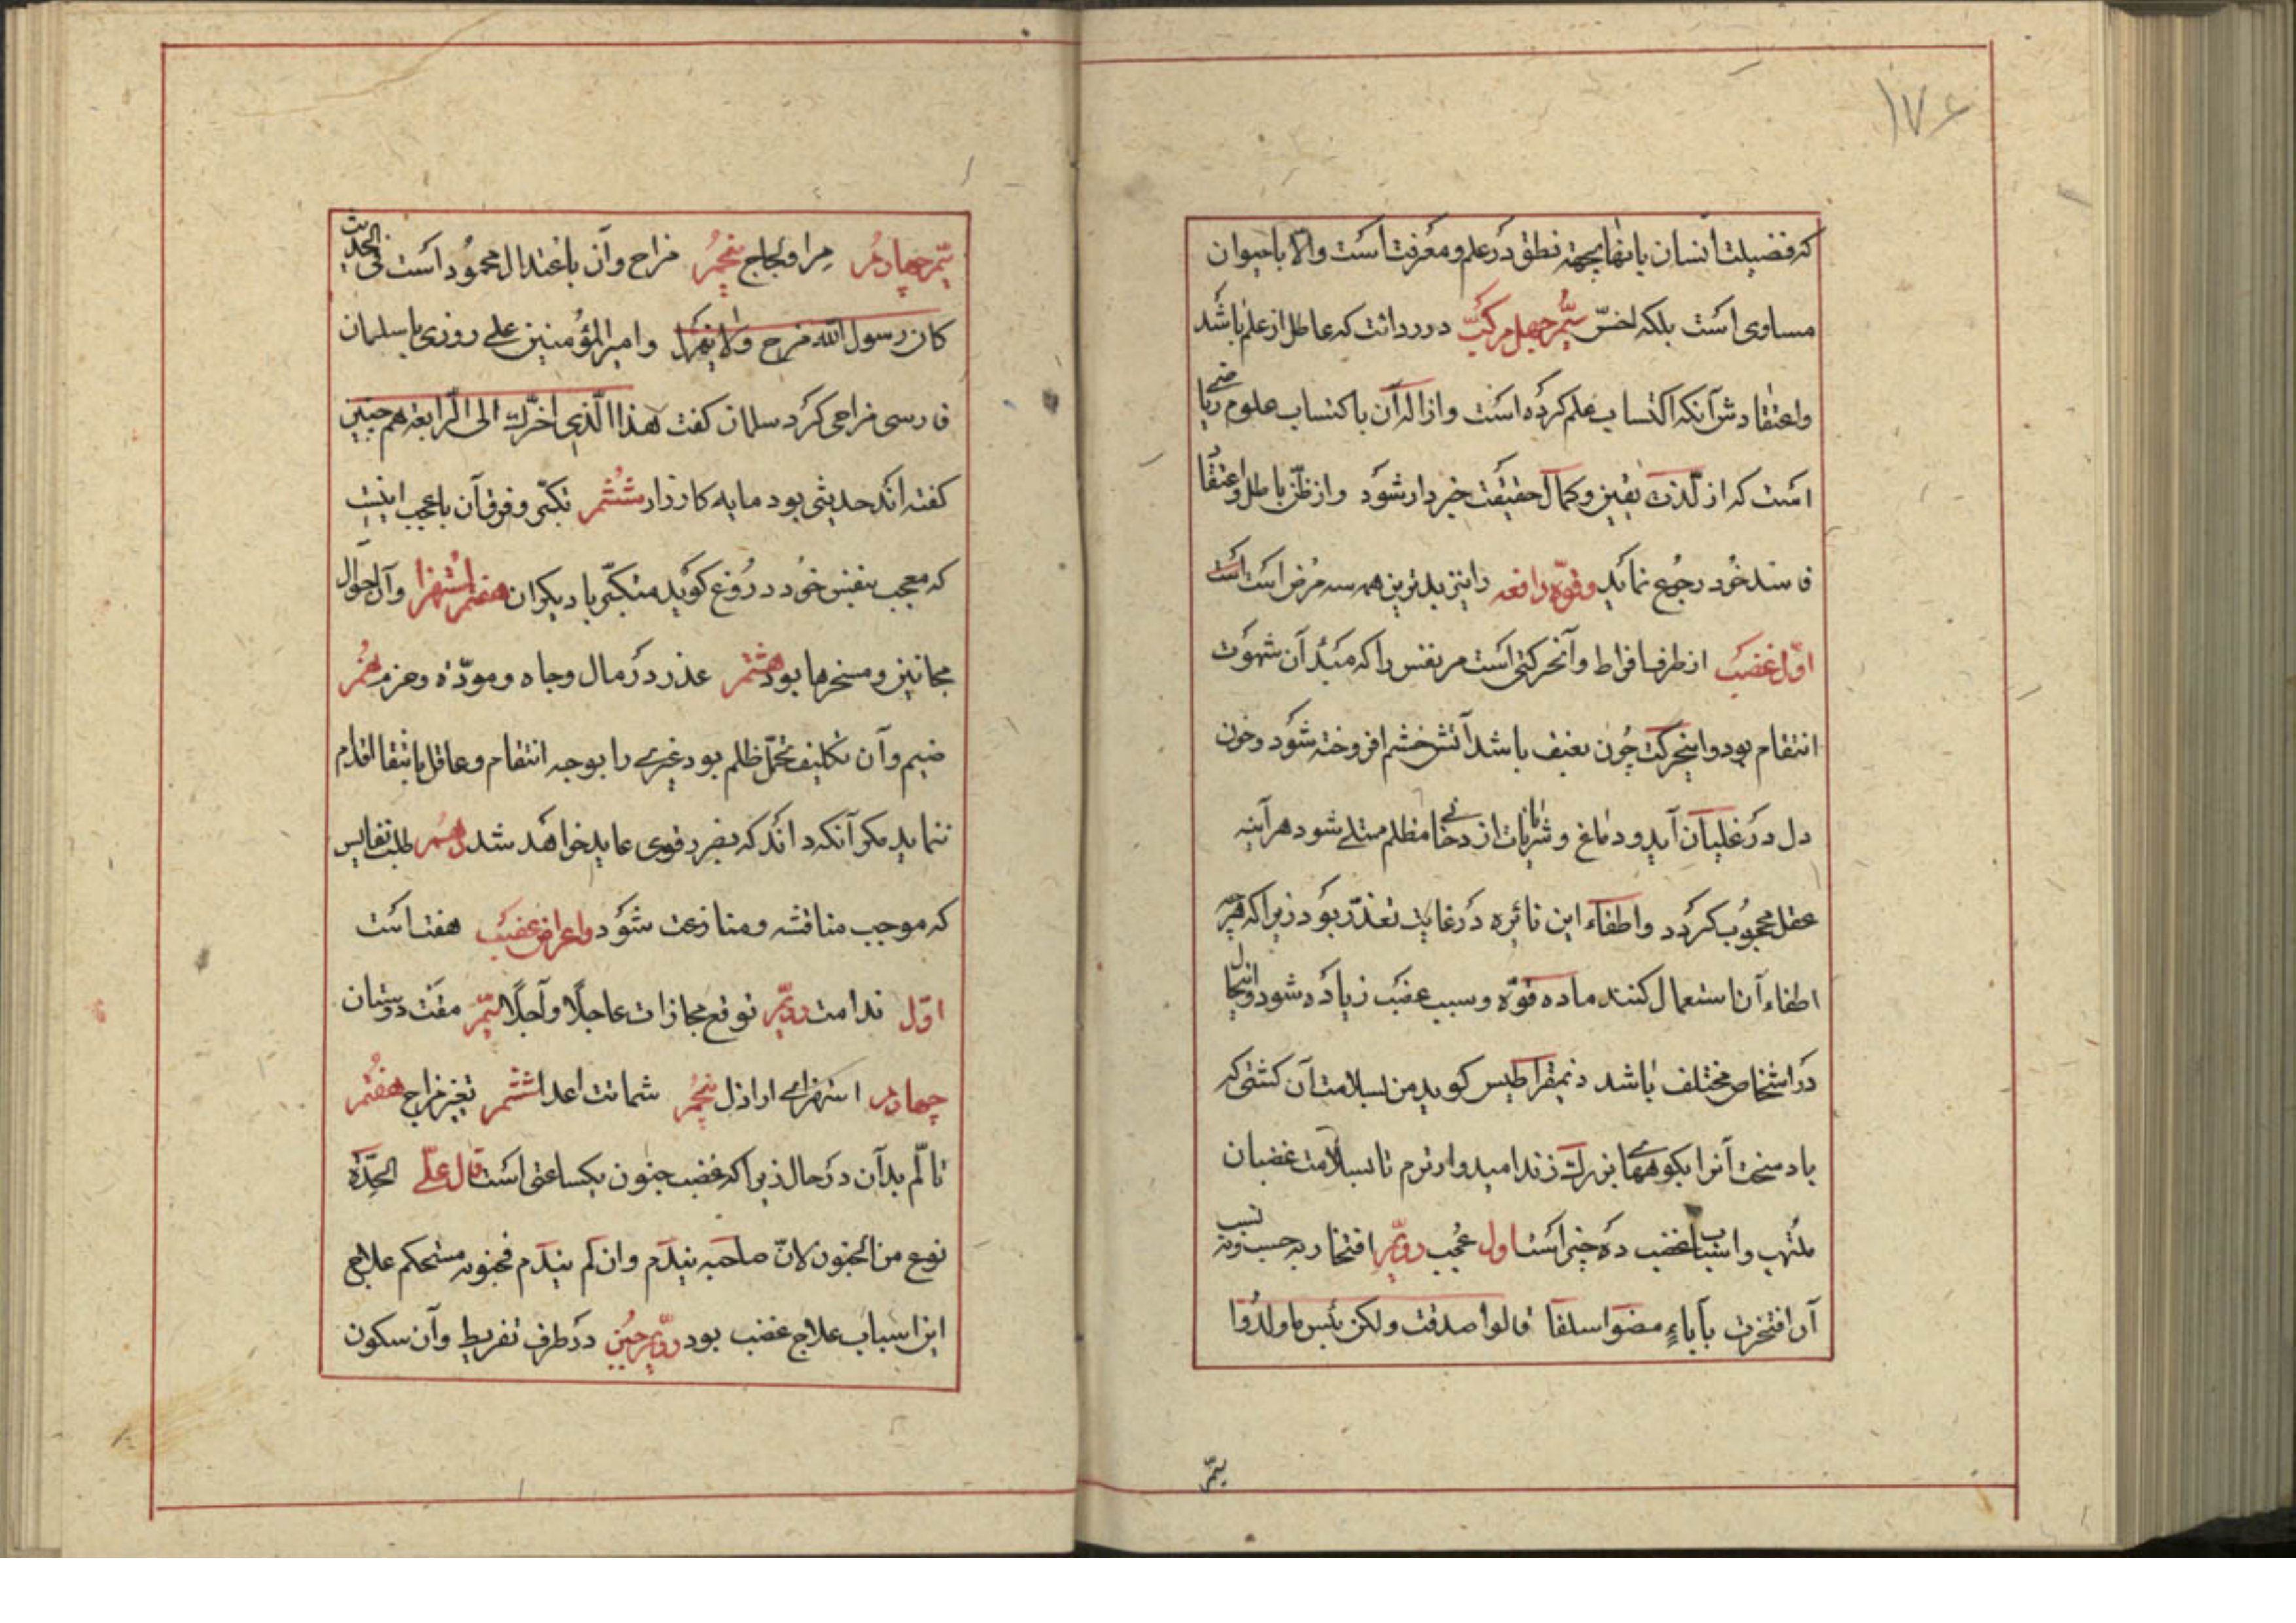 ۱۷۶
که فضیلت انسان بانها بجهة نطق در علم و معرفت است والّا با حیوان
مساوی است بلکه اخسّ سیّم جهل مرکّب و در دانت که عاطل از علم باشد
و اعتقادش آنکه اکتساب علم کرده است و ازاله آن باکتساب علوم ریاضی
است که از لذّت یقین و کمال حقیقت خبردار شود و از ظنّ باطل و اعتقاد
فاسد خود رجوع نماید و قوّه دافعه را نیز بدترین همه سه مرض است
اوّل غضب از طرف افراط و آنحرکتی است مر نفس را که مبدأ آن شهوت
انتقام بود و اینحرکت چون بعنف باشد آتش خشم افروخته شود و خون
دل در غلیان آید و دماغ و شریانات از دخانی مظلم ممتلی شود هرآینه
عقل محجوب گردد و اطفاء این نائره در غایت تعذّر بود زیرا که هرچه
اطفاء آن استعمال کنند ماده قوّه و سبب غضب زیاده شود و اینحال
در اشخاص مختلف باشد دنیمقراطیس گوید من بسلامت آن کشتی که
باد سخت آنرا بکوههای بزرگ زند امیدوارترم تا بسلامت غضبان
ملتهب و اسباب غضب ده چیز است اول عُجب دویّم افتخار به حسب و نسب
آن افتخرت بآباءٍ مضوا سلفا قالوا صدقت ولکن بئس ما ولدُوا
سیّم
سیّم چهارم مرا و لجاج پنجم مزاح و آن باعتدال محمود است فی الحدیث
کان رسول الله مزح ولا یهزل و امیر المؤمنین علی روزی با سلمان
فارسی مزاحی کرد سلمان گفت هذا الّذی اخّرک الی الرابعة هم چنین
گفته اند حدیثی بود مایه کارزار ششم تکبّر و فرق آن با عجب اینست
که معجب بنفس خود دروغ گوید متکبّر با دیگران هفتم استهزا و آن احوال
مجانین و مسخرها بود هشتم عذر در مال و جاه و مودّة و حزم نهم
ضیم و آن تکلیف تحمّل ظلم بود غیری را بوجه انتقام و عاقل بانتقام اقدام
ننماید مگر آنکه داند که بضرر قوی عاید خواهد شد دهم طلب نفایس
که موجب مناقشه و منازعت شود و اعراض غضب هفت است
اوّل ندامت دویّم توقع مجازات عاجلًا و آجلًا سیّم مقت دوستان
چهارم استهزای اراذل پنجم شماتت اعدا ششم تغیر مزاج هفتم
تألّم بدآن در حال زیرا که غضب جنون یکساعتی است قال علیّ الحدّة
نوع من الجنون لانّ صاحبه یندم وان لم یندم فجنونه مستحکم علاج
این اسباب علاج غضب بود دویّم جُبن در طرف تفریط و آن سکون